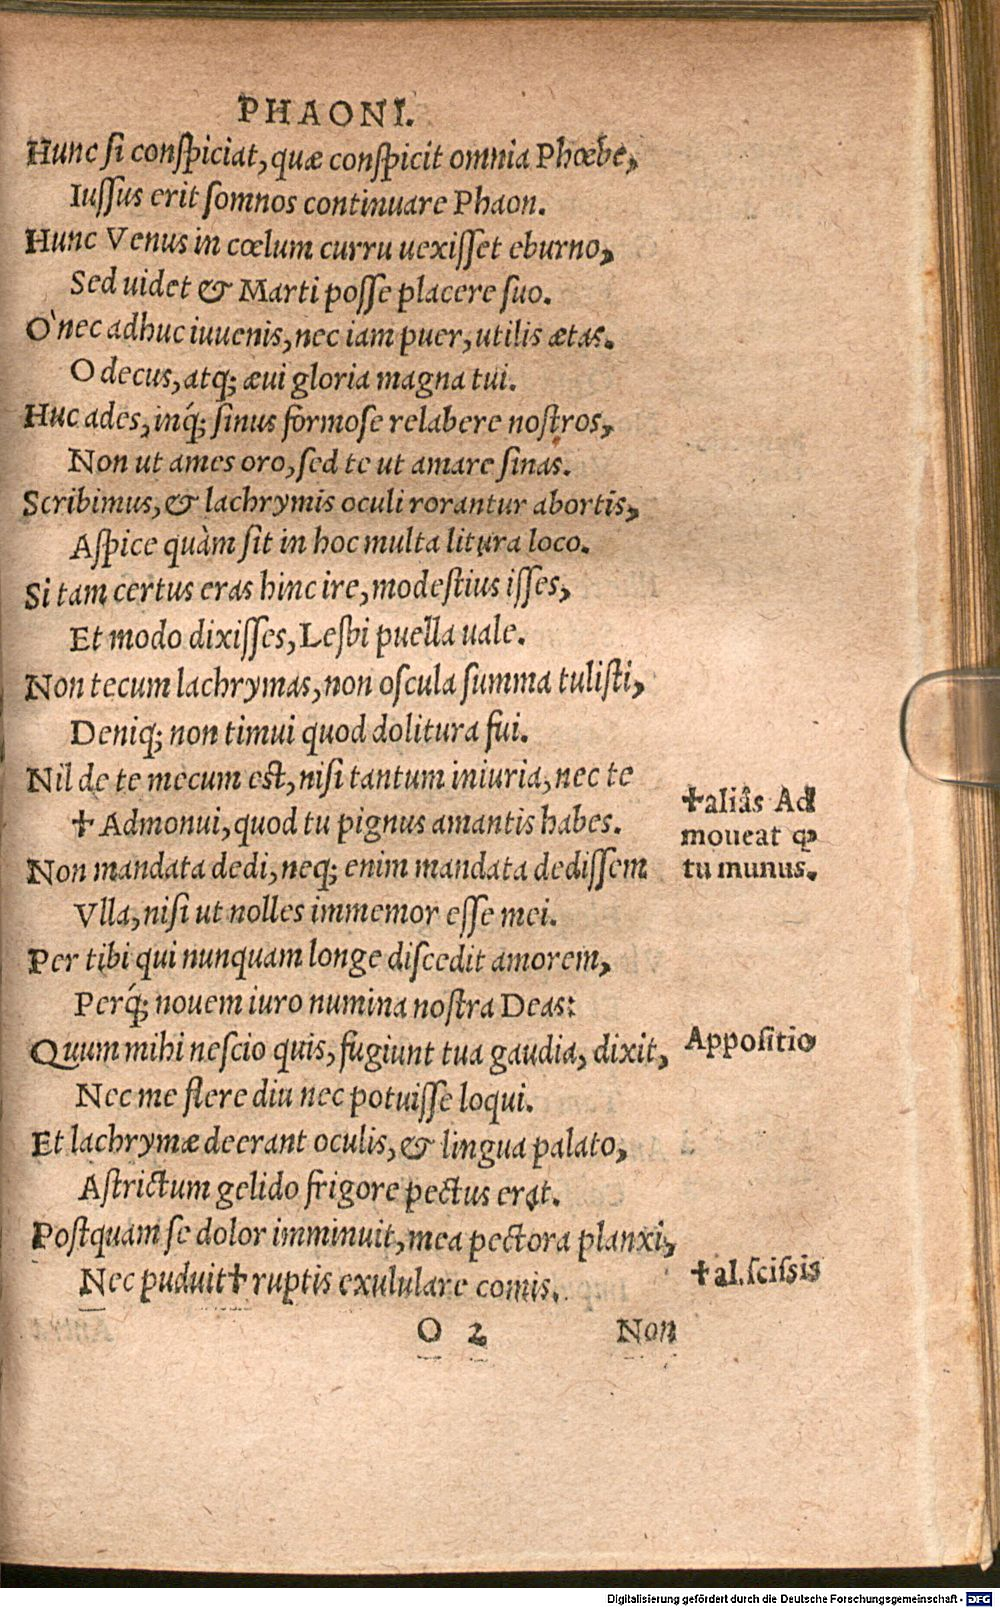 PHAONI.
Hunc si conspiciat, quæ conspicit omnia Phœbe,
Iussus erit somnos continuare Phaon.
Hunc Venus in cœlum curru uexisset eburno,
Sed uidet & Marti posse placere suo.
O`nec adhuc iuuenis, nec iam puer, utilis ætas.
O decus, atq; æui gloria magna tui.
Huc ades, inq́; sinus formose relabere nostros,
Non ut ames oro, sed te ut amare sinas.
Scribimus, & lachrymis oculi rorantur abortis,
Aspice quàm sit in hoc multa litura loco.
Si tam certus eras hinc ire, modestius isses,
Et modo dixisses, Lesbi puella uale.
Non tecum lachrymas, non oscula summa tulisti,
Deniq; non timui quod dolitura fui.
Nil de te mecum est, nisi tantum iniuria, nec te
✝ Admonui, quod tu pignus amantis habes.
✝aliâs Ad
moueat ꝙ
tu munus.
Non mandata dedi, neq; enim mandata dedissem
Vlla, nisi ut nolles immemor esse mei.
Per tibi qui nunquam longe discedit amorem,
Perq́; nouem iuro numina nostra Deas:
Quum mihi nescio quis, fugiunt tua gaudia, dixit,
Appositio
Nec me flere diu nec potuisse loqui.
Et lachrymæ deerant oculis, & lingua palato,
Astrictum gelido frigore pectus erat.
Postquam se dolor imminuit, mea pectora planxi,
Nec puduit ✝ ruptis exululare comis.
✝al. scissis
O 2
Non
Digitalisierung gefördert durch die Deutsche Forschungsgemeinschaft - DFG